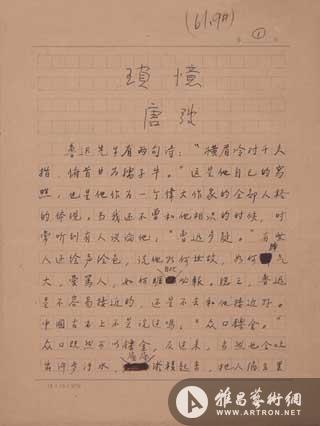 (61.9月)
①
瑣憶
唐弢
鲁迅先生有两句诗：“横眉冷对千夫
指，俯首甘为孺子牛。”这是他自己的写
照，也是他作为一个偉大作家的全部人格
的体现。当我还不曾和他相识的时候，时
常听到有人议论他：“鲁迅多疑。”有些
人还绘声绘色，说他如何世故，如何脾气
大，爱骂人，如何睚眦必報，总之，鲁迅
是不容易接近的，还是不去和他接近好。
中国古书上不是说过吗，“众口铄金。”
众口既然可以铄金，反过来，自然也会吐
出许多污水，積起来，把人
雅昌藝術網
WWW.ARTRON.NET